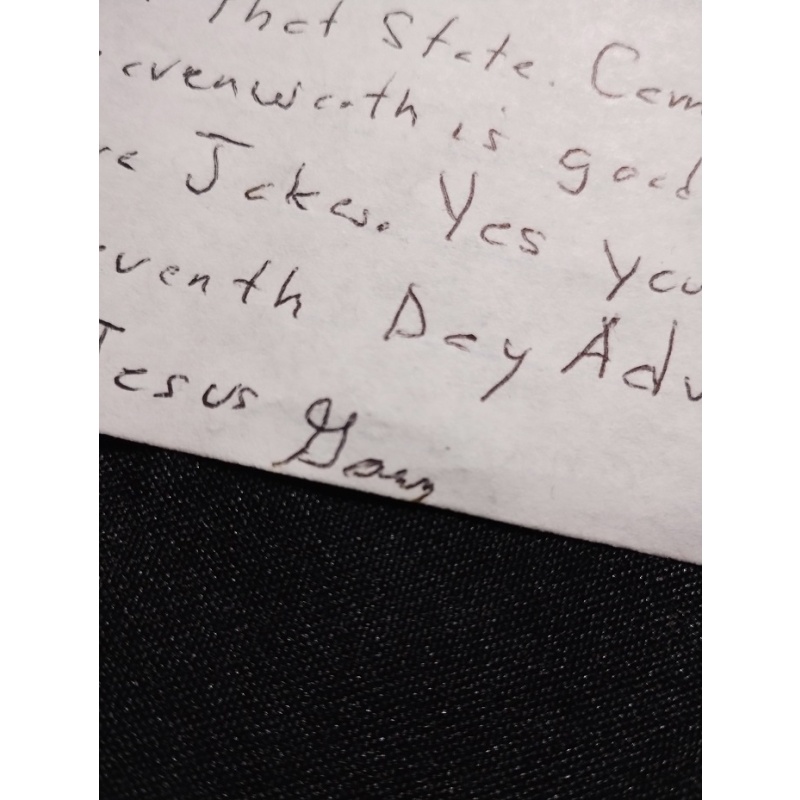 That State. Com
avenworth is good
re Jokes. Yes you
eventh Day Adv
Jesus Gary